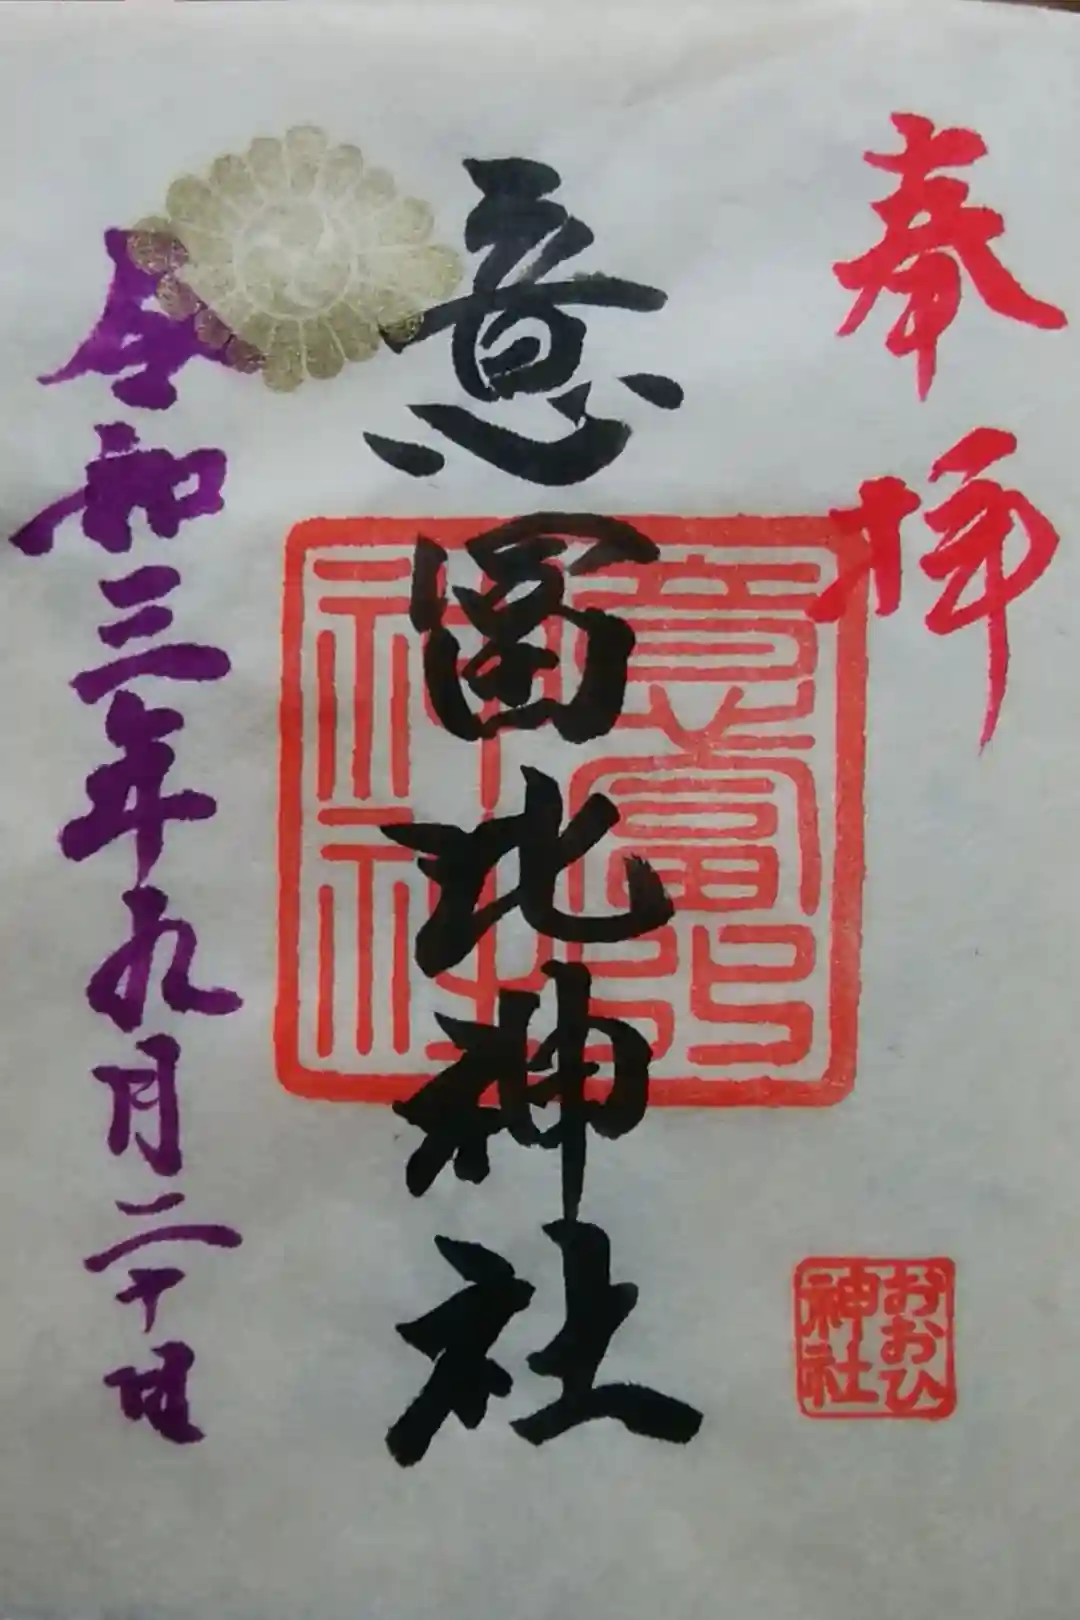 奉拝
意冨比神社
意富比
神社
おおひ
神社
令和三年九月二十日